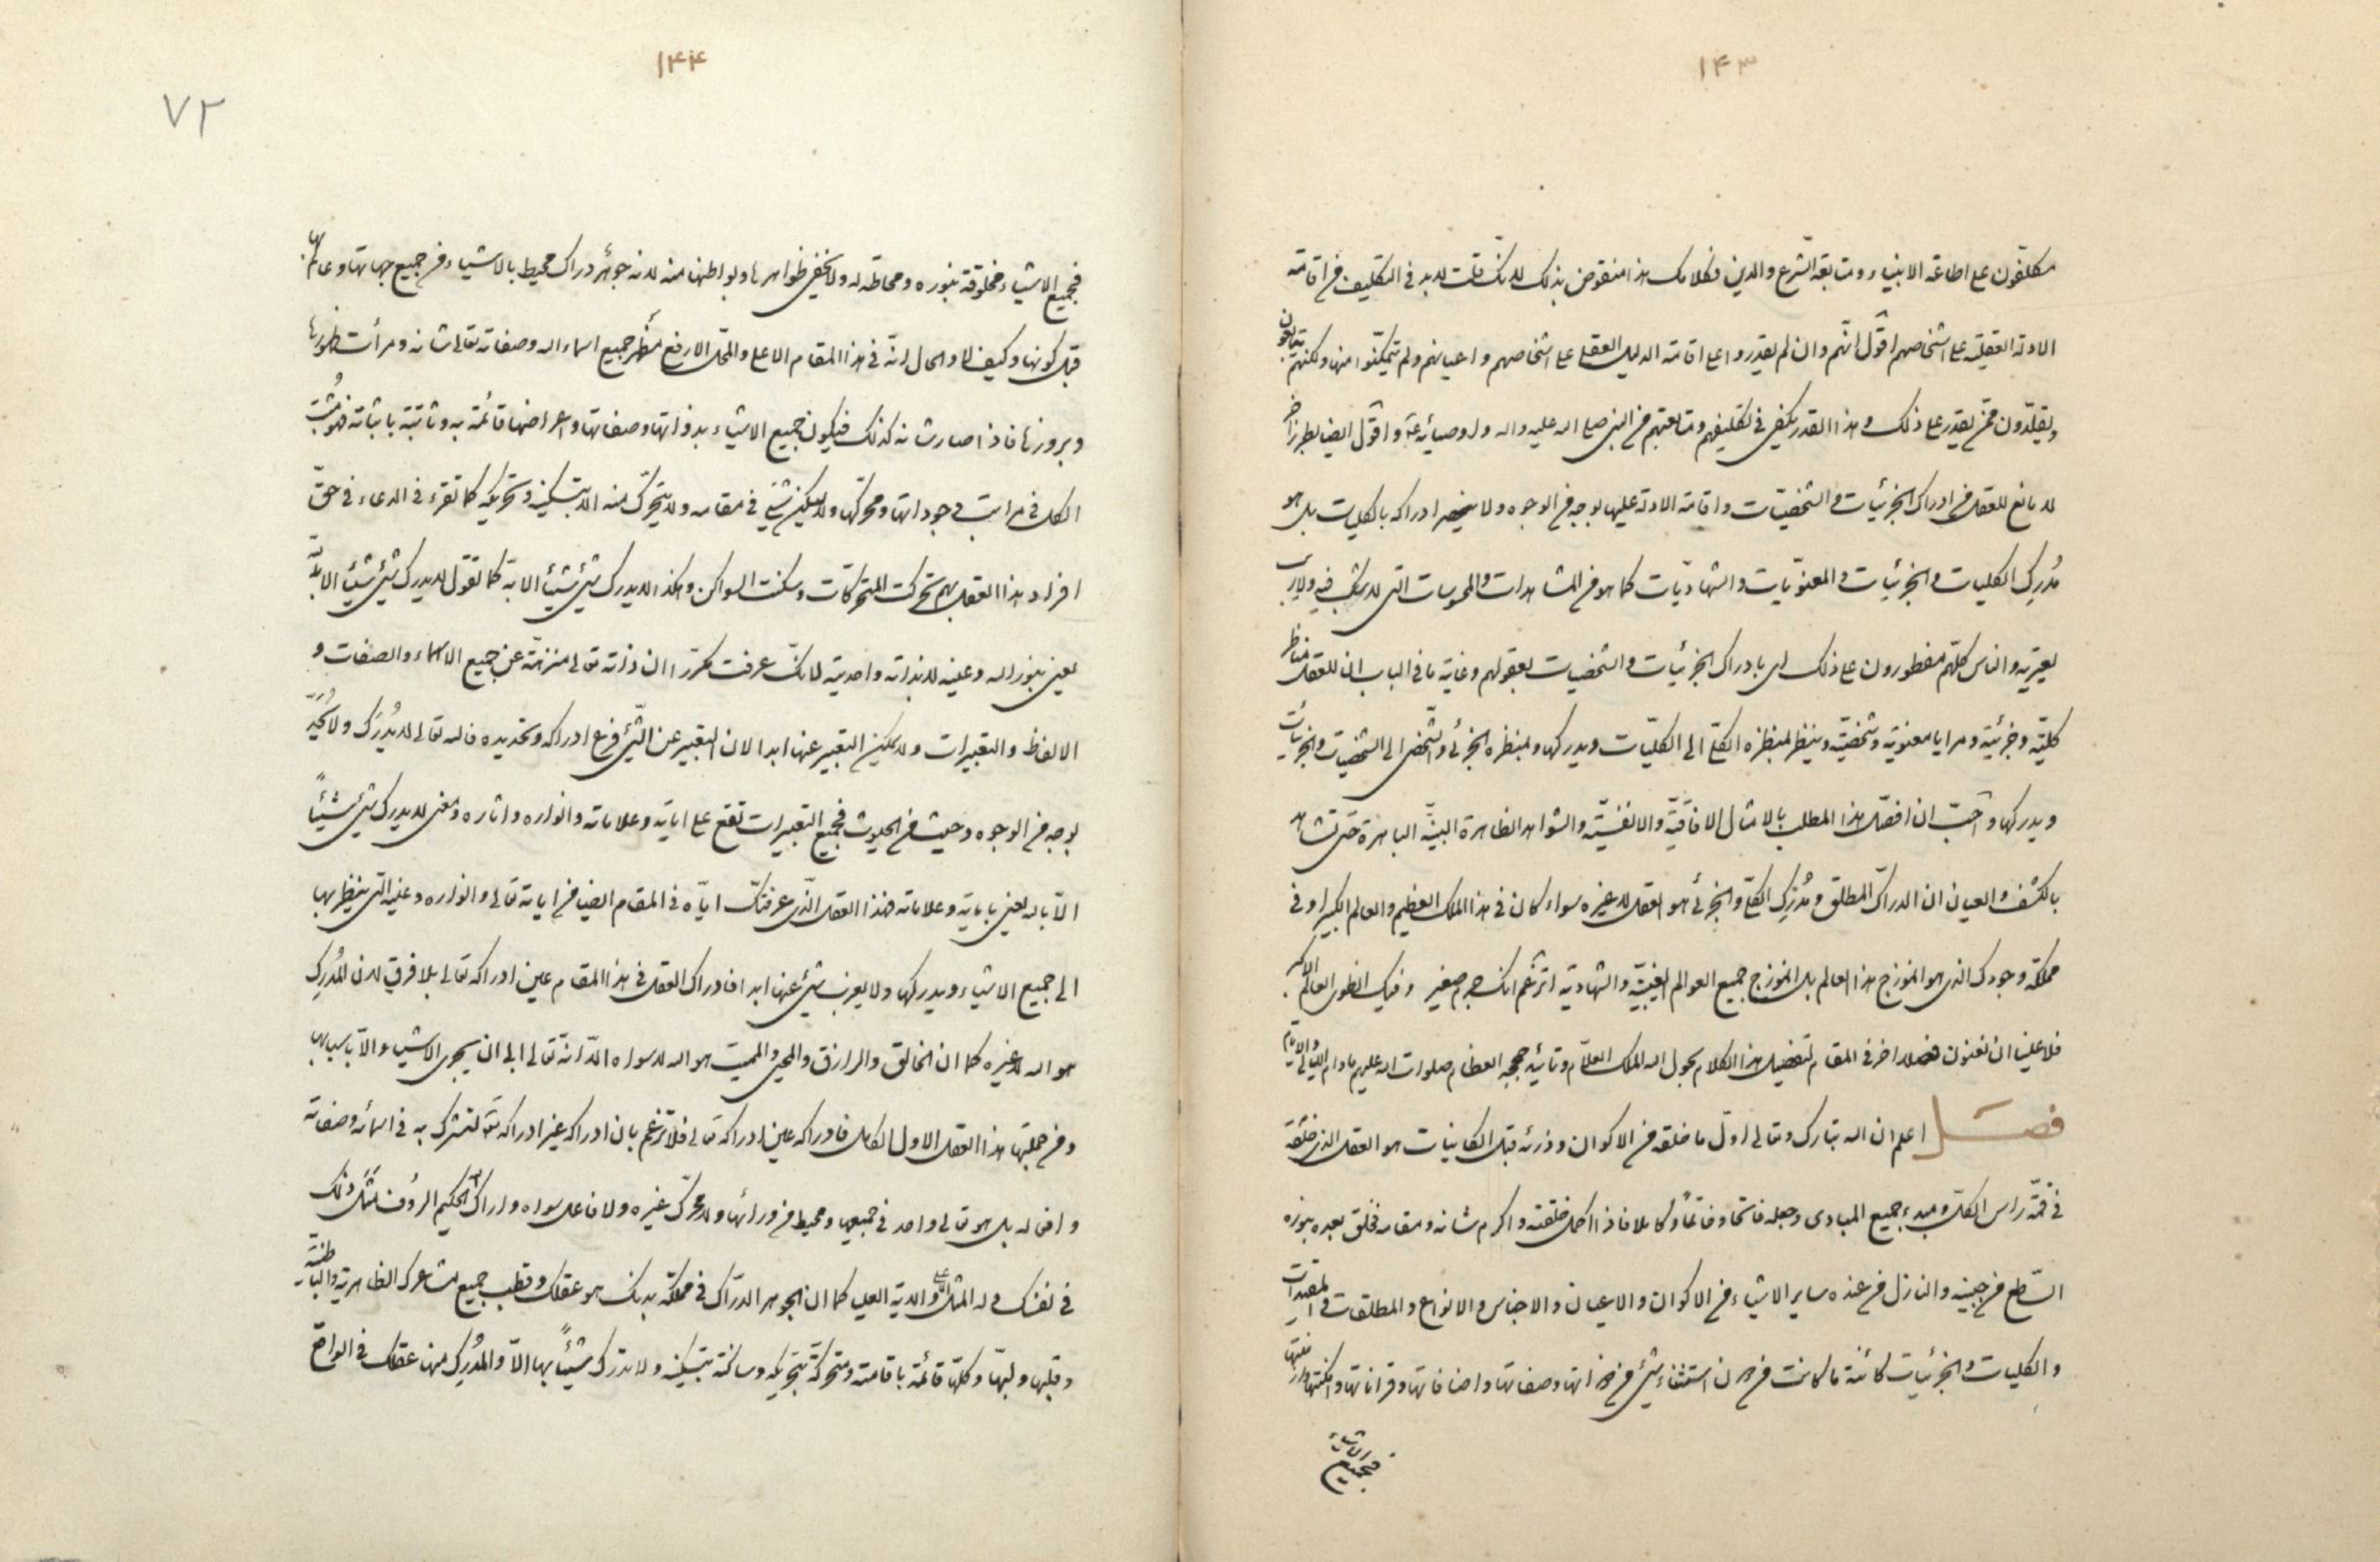 ١۴٣
مكلفون على اطاعة الانبياء ومتابعة الشرع والدين فكلامك هذا منقوض بذلك لانك قلت لابد فى التكليف من اقامة
الادلة العقلية على اشخاصهم اقول انهم وان لم يقدروا على اقامة الدليل العقلى على اشخاصهم واعيانهم ولم يتمكنوا منها ولكنهم يتابعون
ويقلدون ممن يقدر على ذلك وهذا القدر يكفى فى تكليفهم ومتابعتهم من النبى صلى الله عليه واله واوصيائه واقول ايضا بطرز اخر
لا مانع للعقل من ادراك الجزئيات والشخصيات واقامة الادلة عليها بوجه من الوجوه ولا ينحصر ادراكه بالكليات بل هو
مُدرِك الكليات والجزئيات والمعنويات والشهاديات كما هو من المشاهدات والمحسوسات التى لا شك فيه ولا ريب
يعتريه والناس كلهم مفطورون على ذلك اى بادراك الجزئيات والشخصيات بعقولهم وغاية ما فى الباب ان للعقل مناظر
كلية وجزئية ومرايا معنوية وشخصية وينظر بمنظره الكلى الى الكليات ويدركها وبمنظره الجزئى والشخصى الى الشخصيات والجزئيات
ويدركها واحب ان افصل هذا المطلب بالامثال الافاقية والانفسية والشواهد الظاهرة البينة الباهرة حتى تشاهد
بالكشف والعيان ان الدراك المطلق ومُدرِك الكلى والجزئى هو العقل لا غيره سواء كان فى هذا الملك العظيم والعالم الكبير او فى
مملكة وجودك الذى هو انموزج هذا العالم بل انموزج جميع العوالم الغيبية والشهادية اتزعم انك جرم صغير وفيك انطوى العالم الاكبر
فلا علينا ان نعنون فصلا اخر فى المقام لتفصيل هذا الكلام بحول الله الملك العلام وتائيد حججه العظام صلوات الله عليهم مادام الليالى والايام
فصل اعلم ان الله تبارك وتعالى اول ما خلقه من الاكوان وذرئه قبل الكاينات هو العقل الذى خلقه
فى قمة راس الكل ومبدء جميع المبادى وجعله فاتحا وخاتما وكاملا فاذا اكمل خلقته واكرم شانه ومقامه فخلق بعده بنوره
الساطع من جبينه والنازل من عنده ساير الاشياء من الاكوان والاعيان والاجناس والانواع والمطلقات والمقيدات
والكليات والجزئيات كائنة ما كانت من دون استثناء شىء من ذواتها وصفاتها واضافاتها وقراناتها وامكنتها وازمنتها
فجميع الاشياء
١۴۴
٧٢
فجميع الاشياء مخلوقة بنوره ومحاطة له ولا يخفى ظواهرها وبواطنها منه لانه جوهر دراك محيط بالاشياء من جميع جهاتها وعالم بها
قبل كونها وكيف لا والحال انه فى هذا المقام الاعلى والمحل الارفع مظهر جميع اسماء الله وصفاته تعالى شانه ومرأت ظهورها
وبروزها فاذا صار شانه كذلك فيكون جميع الاشياء بذواتها وصفاتها واعراضها قائمة به وثابتة باثباته فهو مُثبت
الكل فى مراتب وجوداتها ومحركها ولا يسكن شىء فى مقامه ولا يتحرك منه الا بتسكينه وتحريكه كما تقرء فى الدعاء فى حق
افراد هذا العقل بهم تحركت المتحركات وسكنت السواكن وهكذا لا يدرك شىء شيئا الا به كما تقول لا يدرك شىء شيئا الا بالله
يعنى بنور الله وعينه لا بذاته واحديته لانك عرفت مكررا ان ذاته تعالى منزهة عن جميع الاسماء والصفات و
الالفاظ والتعبيرات ولا يمكن التعبير عنها ابدا لان التعبير عن الشىء فرع ادراكه وتحديده فالله تعالى لا يُدرَك ولا يُحدّ
بوجه من الوجوه وحيث من الحيوث فجميع التعبيرات تقع على اياته وعلاماته وانواره واثاره ومعنى لا يدرك شىء شيئاً
الا بالله يعنى باياته وعلاماته فهذا العقل الذى عرفتك اياه فى المقام ايضا من اياته تعالى وانواره وعينه التى ينظر بها
الى جميع الاشياء ويدركها ولا يعزب شىء عنها ابدا فادراك العقل فى هذا المقام عين ادراكه تعالى بلا فرق لان المُدرِك
هو الله لا غيره كما ان الخالق والرازق والمحيى والمميت هو الله لا سواه الا انه تعالى ابى ان يجرى الاشياء الا باسبابها
ومن جملتها هذا العقل الاول الكامل فادراكه عين ادراكه تعالى فلا تزعم بان ادراكه غير ادراكه لتشرك به فى اسمائه وصفاته
وافعاله بل هو تعالى واحد فى جميعها ومحيط من ورائها ولا محرك غيره ولا فاعل سواه واراك الحكيم الرؤف مثل ذلك
فى نفسك وله المثل الاعلى والاية العليا كما ان الجوهر الدراك فى مملكة بدنك هو عقلك وقطب جميع مشاعرك الظاهرية والباطنية
وقلبها ولبها وكلها قائمة باقامته ومتحركة بتحريكه وساكنة بتسكينه ولا تدرك شيئاً بها الا والمُدرِك منها عقلك فى الواقع